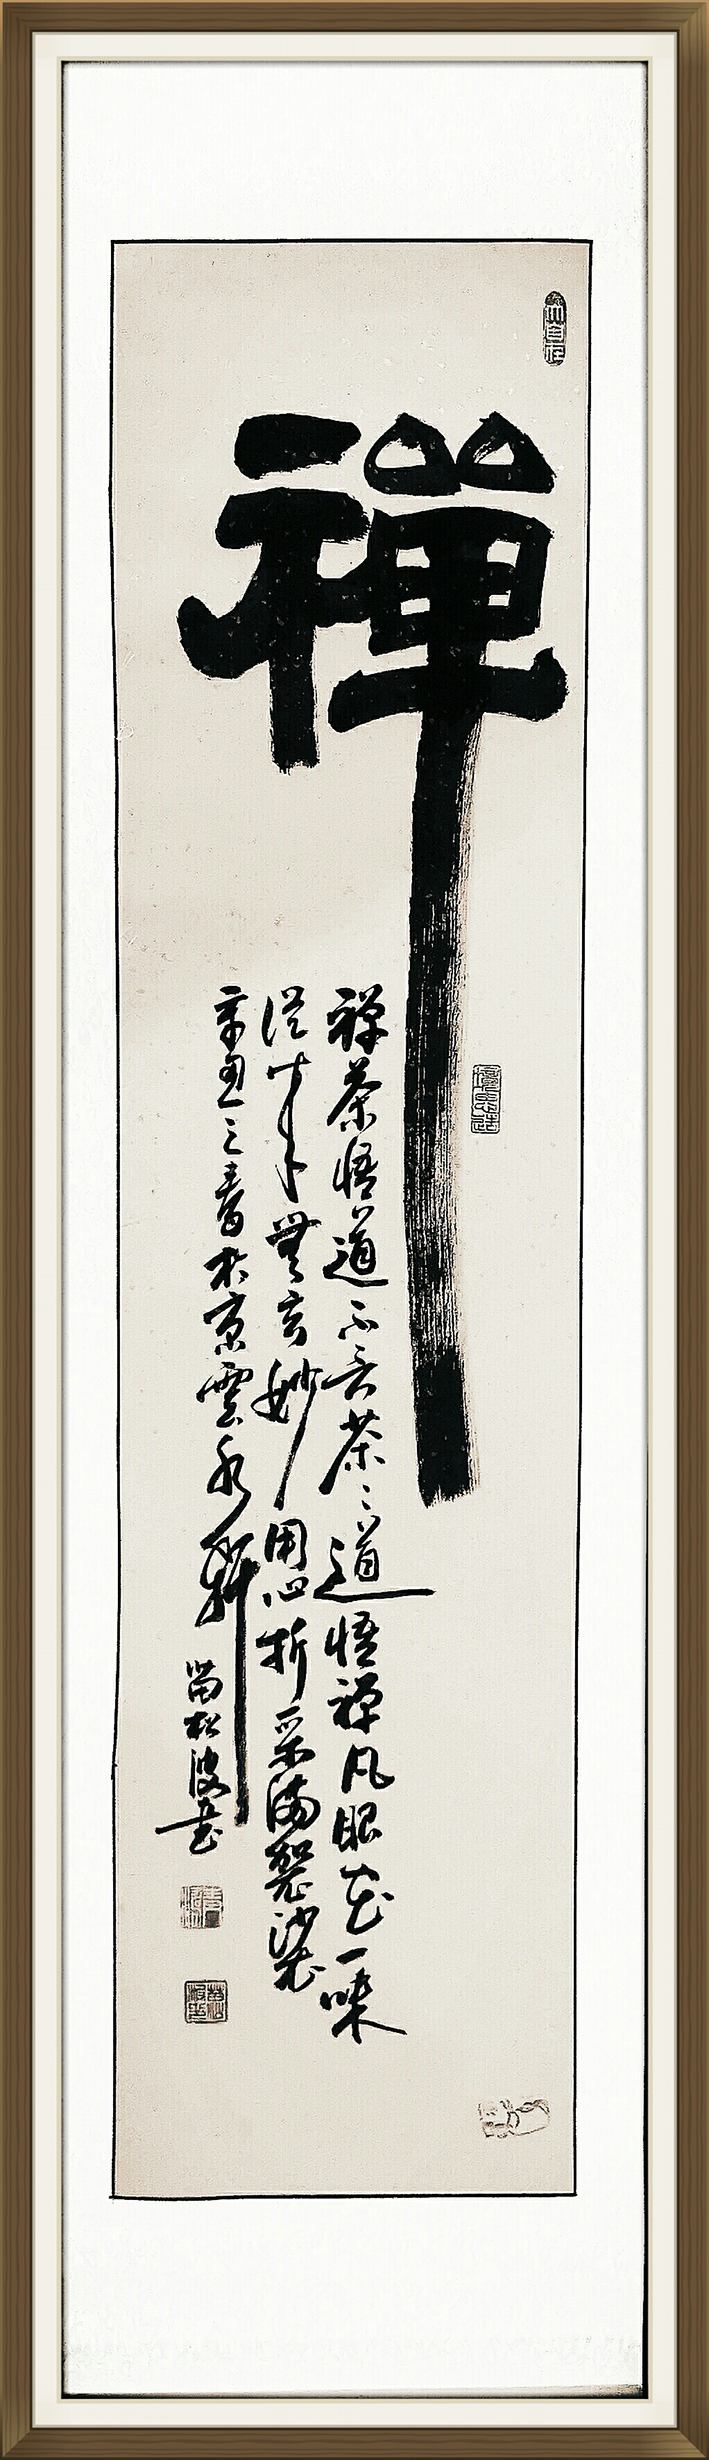 禪
禅茶悟道不言茶〻道悟禅凡眼花一味
從來無玄妙用心折采滿袈裟
辛丑之春於京雲水軒
苗松波書